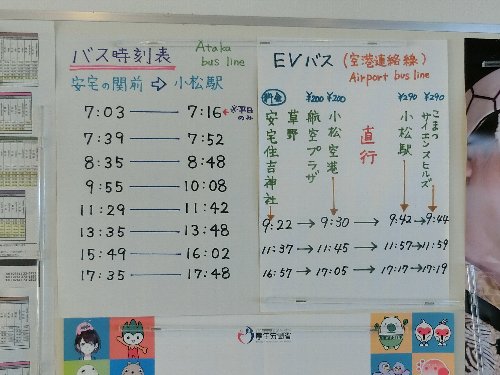 バス時刻表
Ataka
bus line
安宅の関前 ⇨ 小松駅
7:03 7:16 ←※平日のみ
7:39 7:52
8:35 8:48
9:55 10:08
11:29 11:42
13:35 13:48
15:49 16:02
17:35 17:48
EVバス (空港連絡線)
Airport bus line
料金 ¥200 ¥200 ¥290 ¥290
安宅住吉神社
草野
航空プラザ
小松空港
直行
小松駅
こまつ
サイエンスヒルズ
9:22 → 9:30 → 9:42 → 9:44
11:37 → 11:45 → 11:57 → 11:59
16:57 → 17:05 → 17:17 → 17:19
厚生労働省